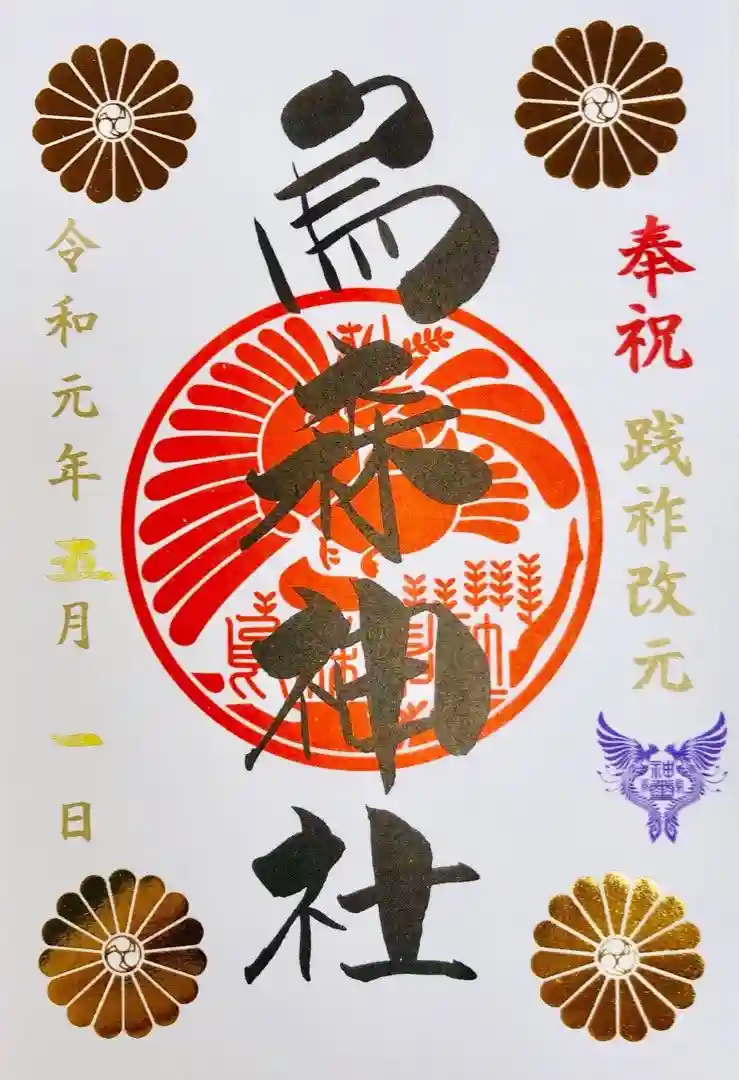 奉祝 践祚改元
神璽
烏森神社
令和元年五月一日